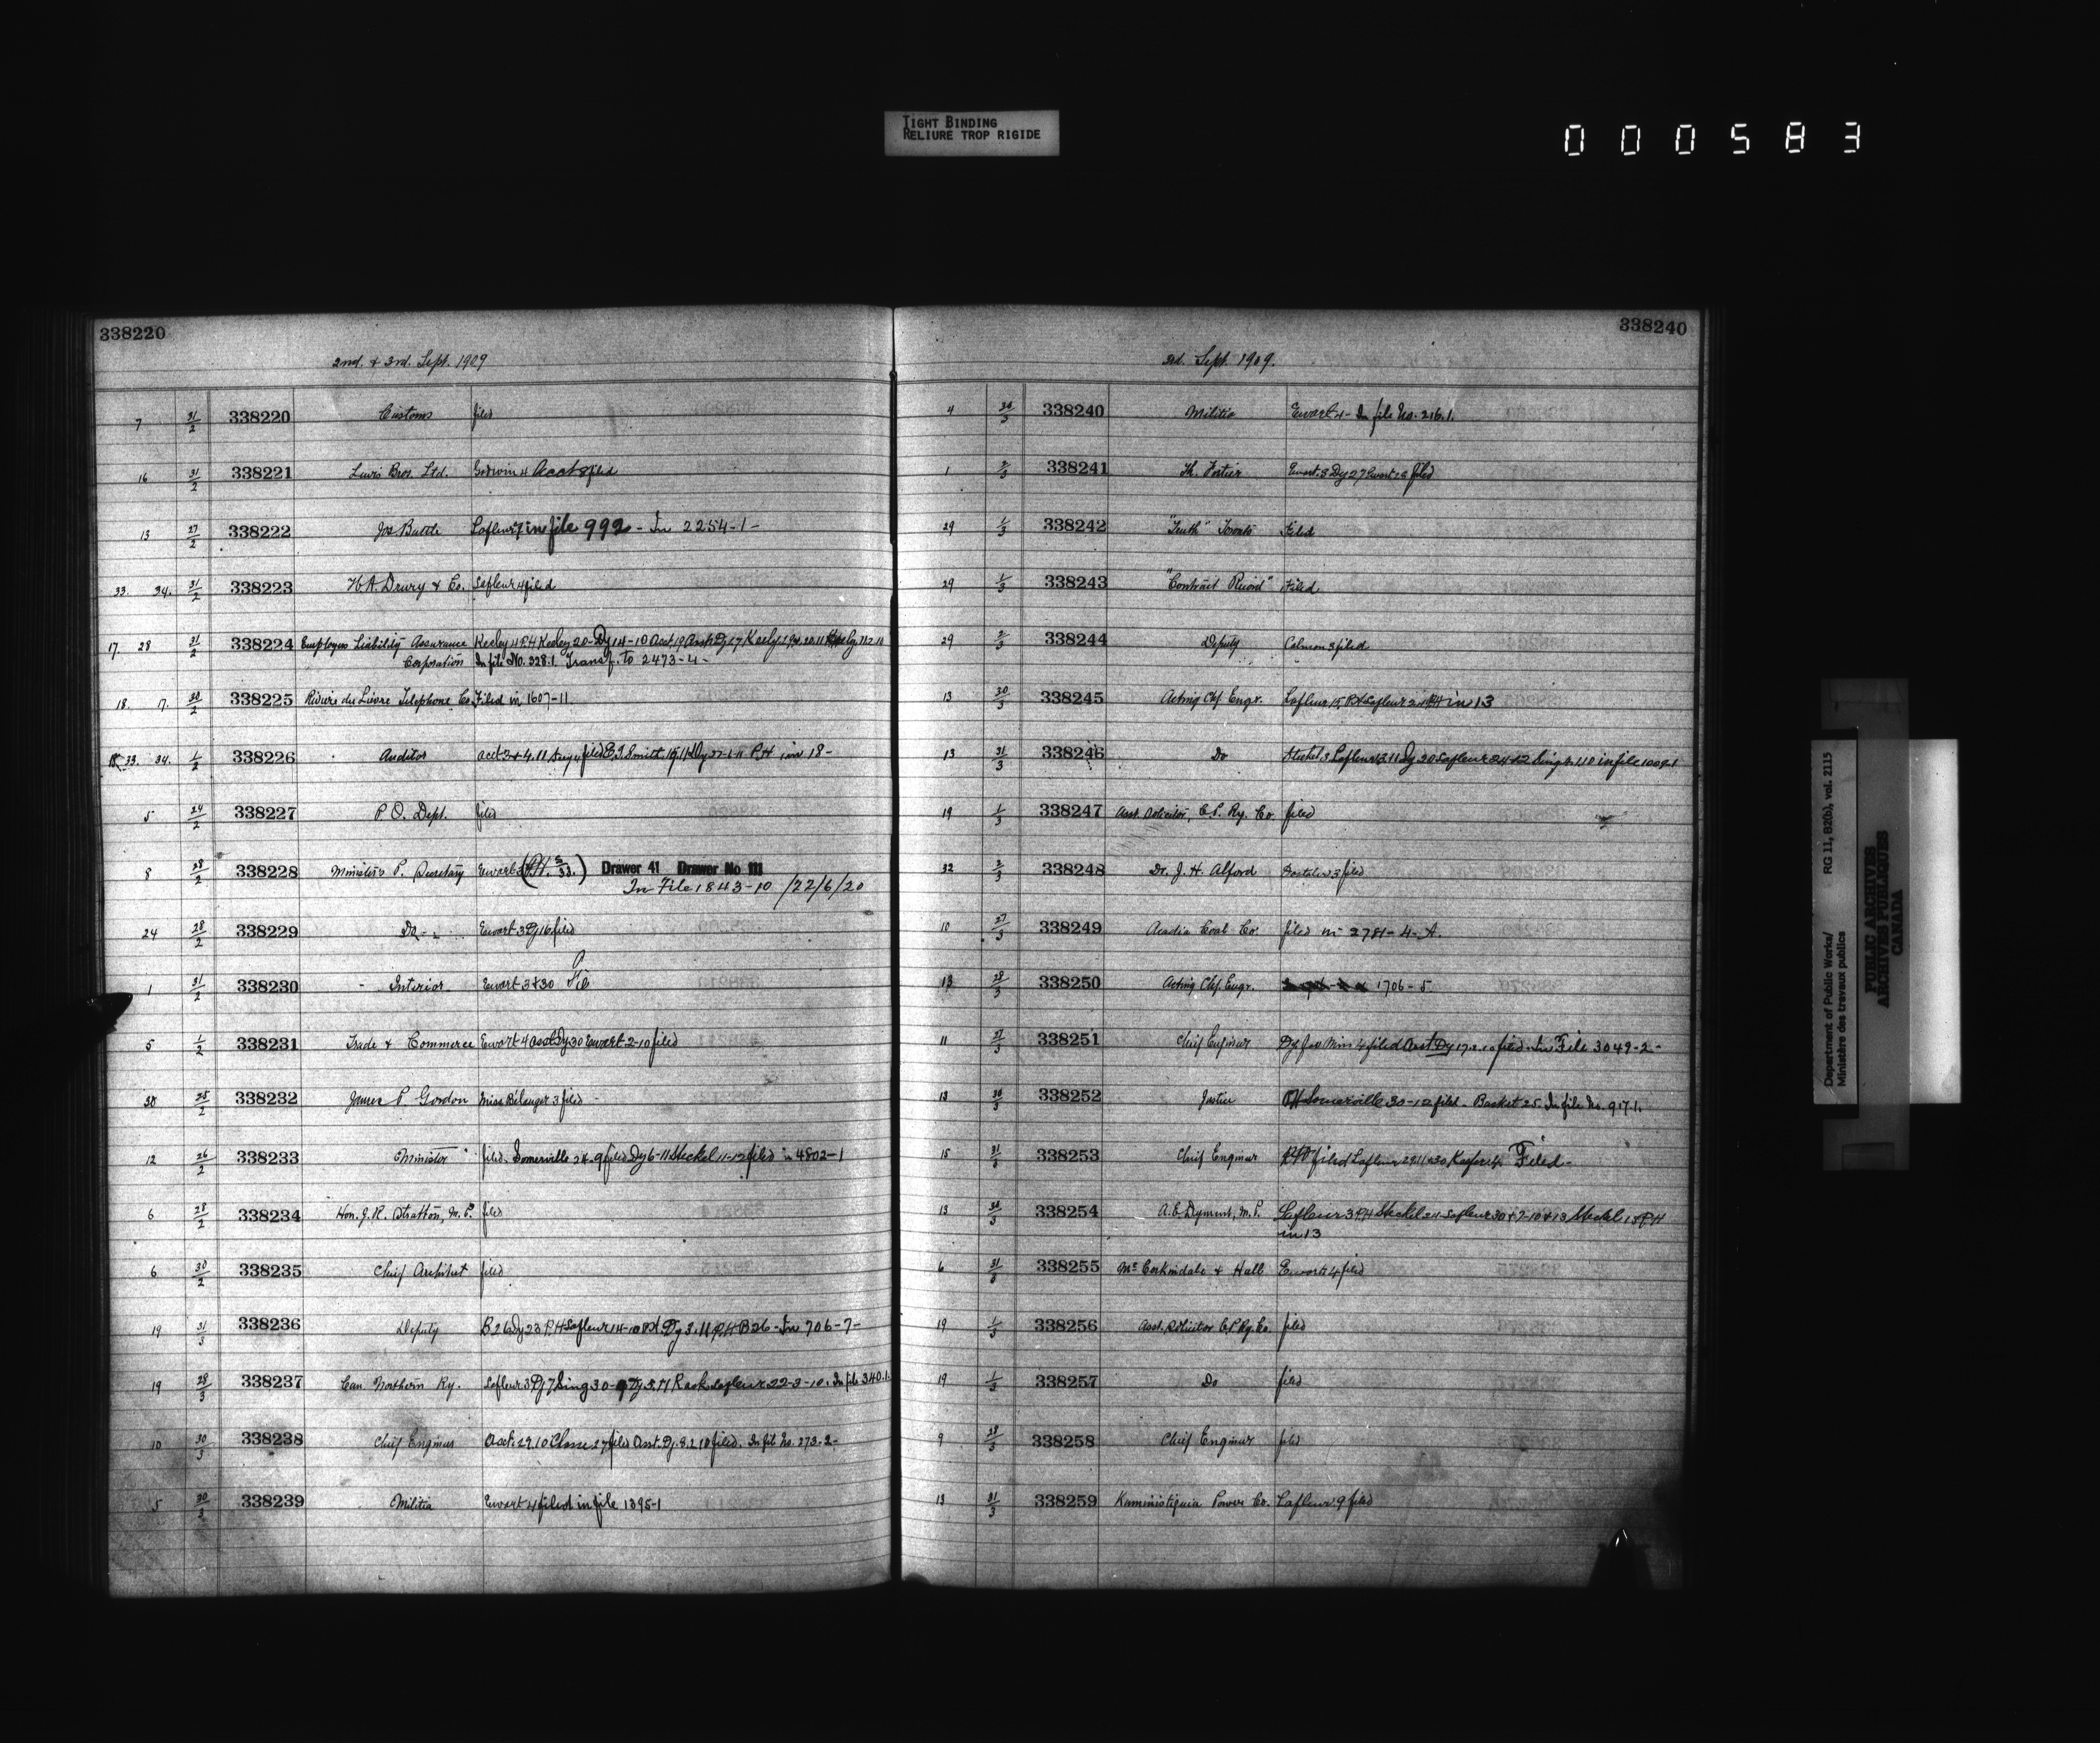 TIGHT BINDING
RELIURE TROP RIGIDE
000583
338220
2nd. & 3rd. Sept. 1909
7 31/2 338220 Customs filed
16 31/2 338221 Lewis Bros. Ltd. Godwin 4 Acct 8 filed
13 27/2 338222 Jos. Battle Lafleur 7 in file 992 - In 2254-1-
33. 34. 31/2 338223 H. A. Drury & Co. Lafleur 4 filed
17. 28 31/2 338224 Employers Liability Assurance Keeley 4 P.H Keeley 20- Dy 14-10 Acct 19 Asst Dy 17 Keeley
Corporation In file No. 328.1. Transf. to 2473-4-
18. 17. 30/2 338225 Riviere du Lievre Telephone Co. Filed in 1607-11.
33. 34. 1/2 338226 Auditor acct 3 & 4.11 filed E. J. Smith P.H in 18-
5 24/2 338227 P. O. Dept. filed
8 28/2 338228 Minister's P. Secretary Ewart 3 Drawer 41 Drawer No 111
In File 1843-10 /22/6/20
24 28/2 338229 Do Ewart 3 Dy 16 filed
1 31/2 338230 Interior Ewart 3 & 30
5 1/2 338231 Trade & Commerce Ewart 4 asst Dy 30 Ewart 2-10 filed
30 25/2 338232 James P. Gordon Miss Bélanger 3 filed
12 26/2 338233 Minister filed. Somerville 24.9 filed Dy 6-11 Steckel 11-12 filed in 4802-1
6 28/2 338234 Hon. J. R. Stratton, M.P. filed
6 30/2 338235 Chief Architect filed
19 31/3 338236 Deputy B 26 Dy 23 P.H Lafleur 14-10 Dy 3.11 P.H B26 - In 706-7-
19 28/3 338237 Can. Northern Ry. Lafleur 3 Dy 7 Sing 30-9 Dy 5.11 Rack Lafleur 22-3-10. In file 340.1.
10 30/3 338238 Chief Engineer Acct. 29.10 Chasse 27 filed Asst. Dy. 8.2.10 filed. In file No. 273-2-
5 30/3 338239 Militia Ewart 4 filed in file 1395-1
338240
3rd. Sept. 1909.
4 30/3 338240 Militia Ewart 4- In file No. 216.1.
1 2/3 338241 Th. Fortier Ewart. 3 Dy 27 Ewart filed
29 1/3 338242 "Truth" Toronto Filed
29 1/3 338243 "Contract Record" Filed
29 2/3 338244 Deputy Colmon 3 filed
13 30/3 338245 Acting Chf. Engr. Lafleur 15 P.H Lafleur P.H in 13
13 31/3 338246 Do Steckel 3 Lafleur Dy 20 Lafleur in file 1009-1
19 1/3 338247 Asst. Solicitor, C. P. Ry. Co. filed
32 2/3 338248 Dr. J. H. Alford 3 filed
10 27/3 338249 Acadia Coal Co. filed in 2781-4-A.
13 28/3 338250 Acting Chf. Engr. 1706-5.
11 27/3 338251 Chief Engineer Dy for Min 4 filed Asst. Dy 17.2.10 filed - In File 3049-2-
13 30/3 338252 Justice P.H Somerville 30-12 filed. Basket 25. In file No. 917.1.
15 31/3 338253 Chief Engineer filed Lafleur Keefer 4. Filed-
13 30/3 338254 A. E. Dyment, M.P. Lafleur 3 P.H Steckel 24 Lafleur 30 & 7-10 & 13 Steckel 13 P.H
in 13
6 31/3 338255 McCorkindale & Hull Ewart 4 filed
19 1/3 338256 Asst. Solicitor C. P. Ry. Co. filed
19 1/3 338257 Do filed
9 28/3 338258 Chief Engineer filed
13 31/3 338259 Kaministiquia Power Co. Lafleur 9 filed
Department of Public Works/
Ministère des travaux publics
RG 11, B2(b), vol. 2115
PUBLIC ARCHIVES
ARCHIVES PUBLIQUES
CANADA